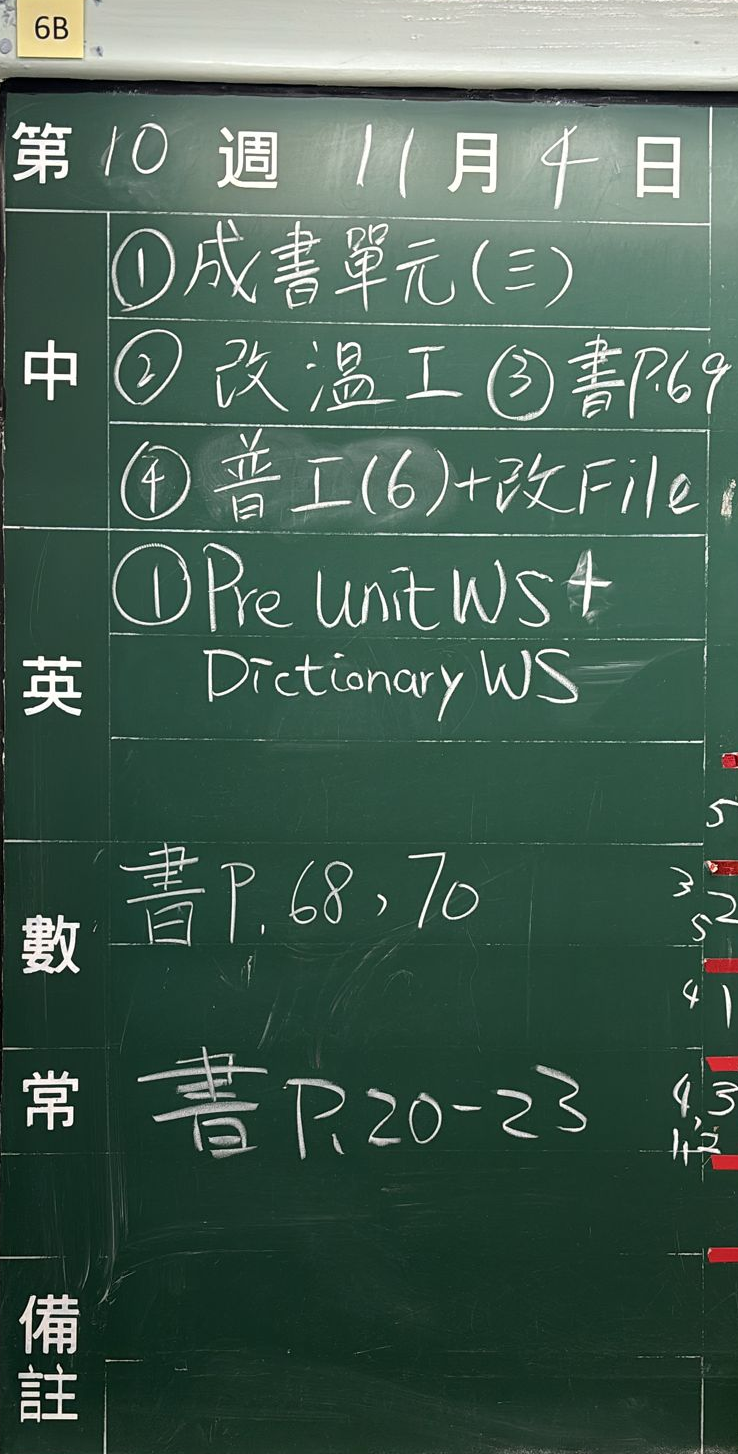 6B
第 10 週 11 月 4 日
中
①成書單元(三)
② 改溫工 ③書P.69
④ 普工(6)+改File
英
①Pre Unit WS+
Dictionary WS
數
書P.68,70
常
書P.20-23
備註
5
3 2
5
4 1
4,3
1,2